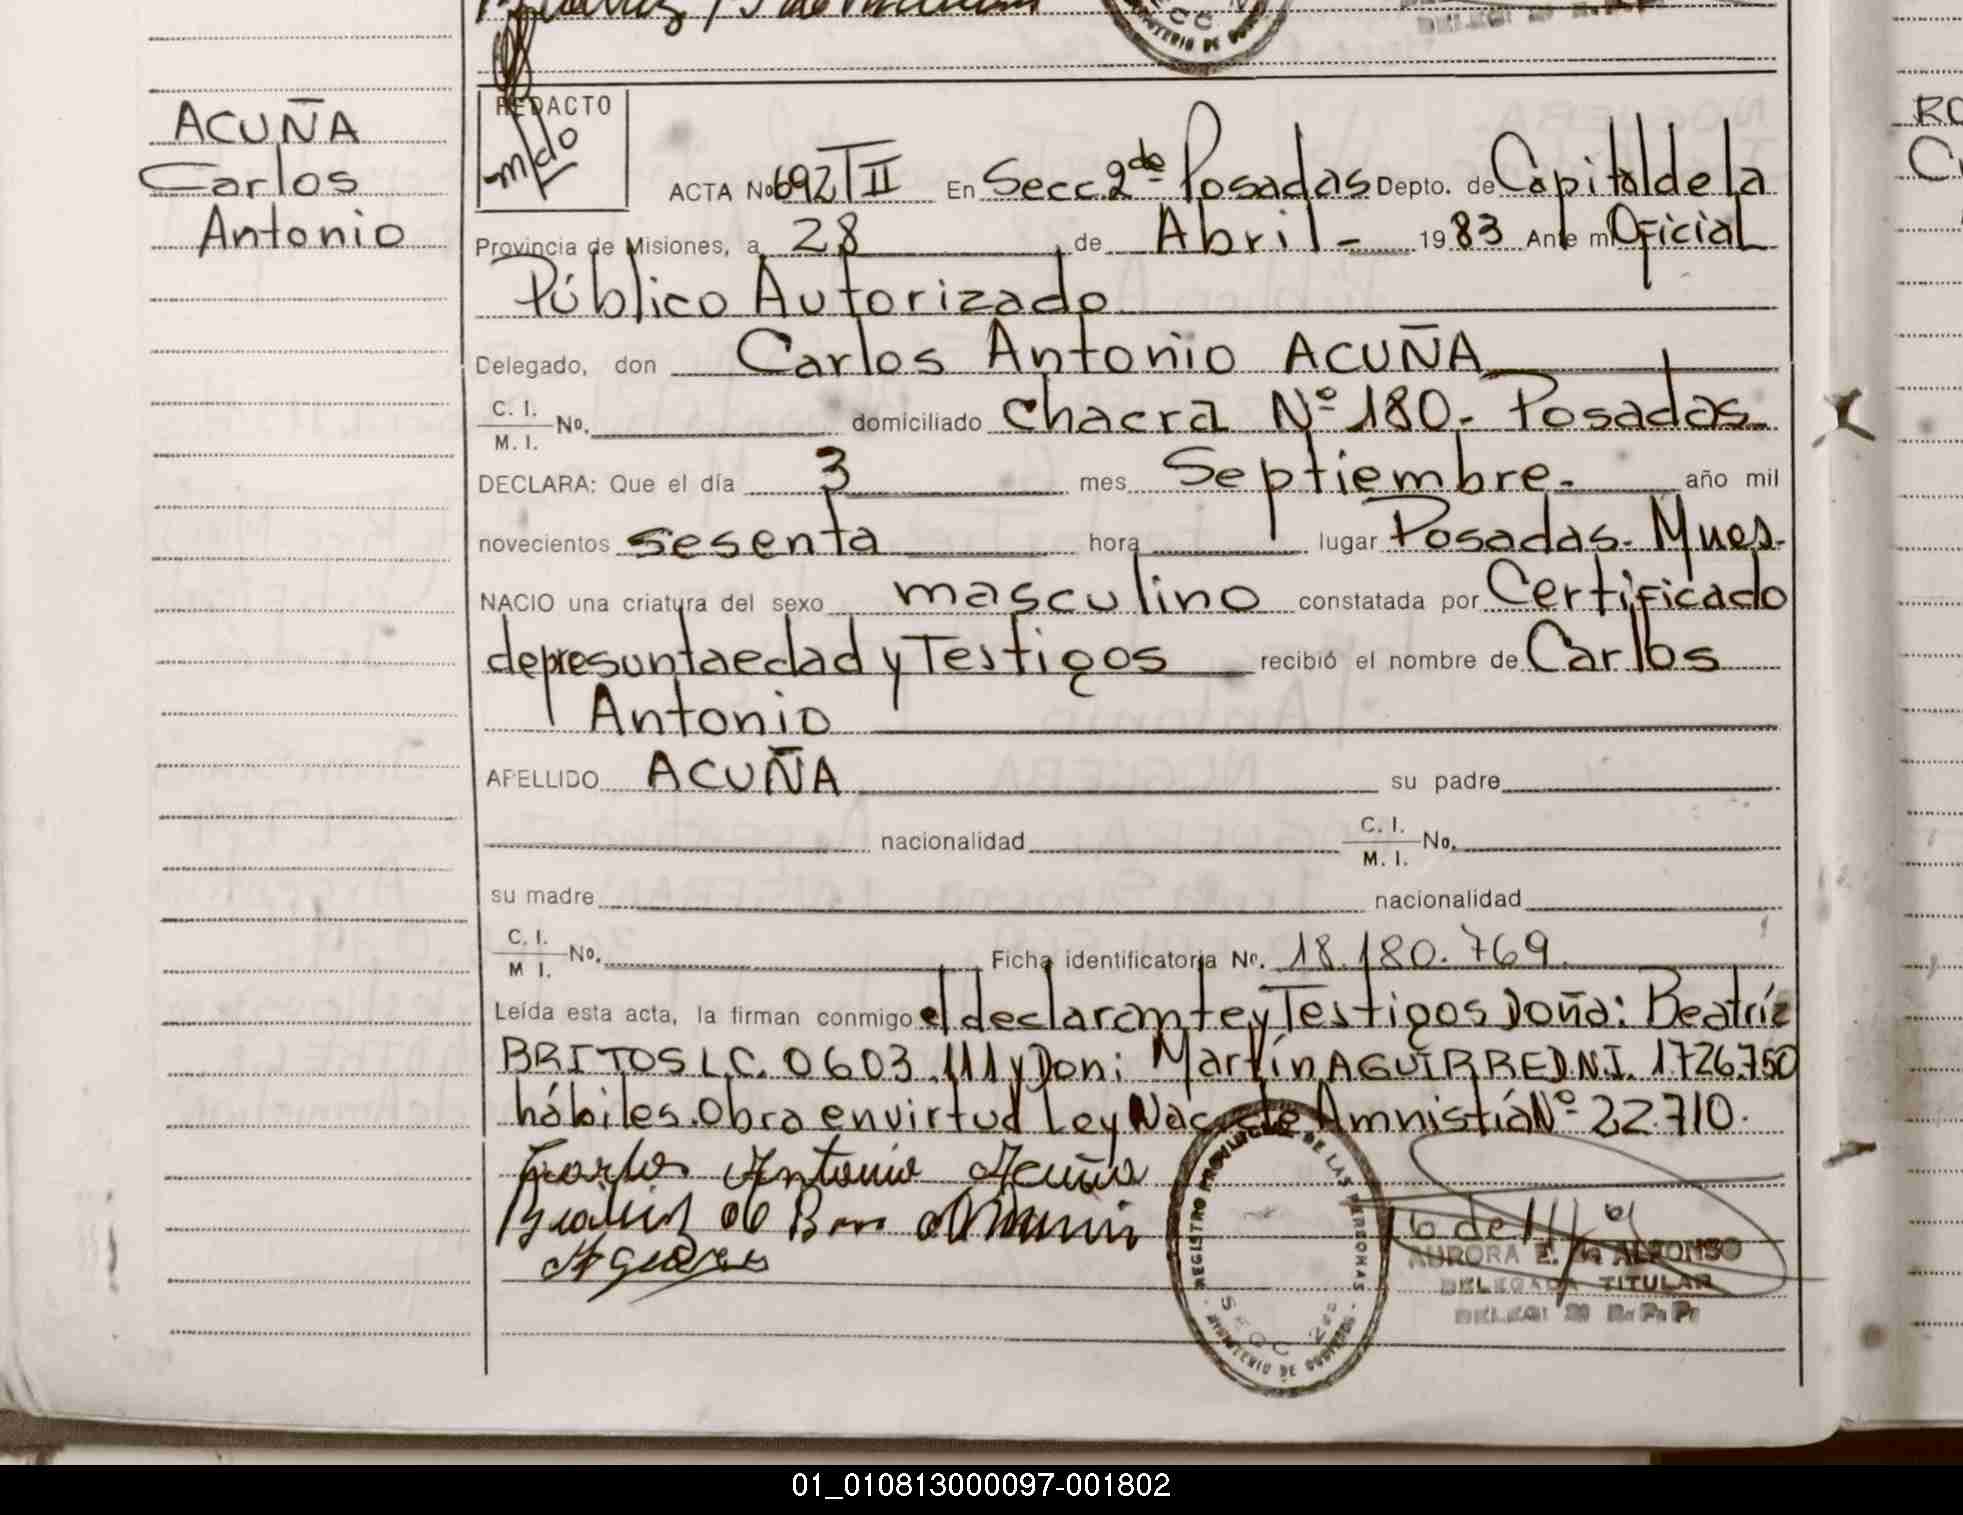 ACUÑA
Carlos
Antonio
REDACTO
ACTA No 692 T II En Secc. 2da Posadas Depto. de Capital de la
Provincia de Misiones, a 28 de Abril - 1983 Ante mi Oficial
Público Autorizado
Delegado, don Carlos Antonio ACUÑA
C. I. / M. I. No. domiciliado Chacra Nº 180. Posadas
DECLARA: Que el día 3 mes Septiembre. año mil
novecientos sesenta hora lugar Posadas. Mnes.
NACIO una criatura del sexo masculino constatada por Certificado
de presunta edad y Testigos recibió el nombre de Carlos
Antonio
APELLIDO ACUÑA su padre
nacionalidad C. I. / M. I. No.
su madre nacionalidad
C. I. / M I. No. Ficha identificatoria No. 18.180.769.
Leída esta acta, la firman conmigo el declarante y Testigos Doña: Beatríz
BRITOS L.C. 0603.111 y Don: Martín AGUIRRE D.N.I. 1.726.750
hábiles. Obra en virtud Ley Nac. de Amnistía Nº 22.710.
Carlos Antonio Acuña
REGISTRO PROVINCIAL DE LAS PERSONAS
SECC 2da
MINISTERIO DE GOBIERNO
AURORA E. de ALFONSO
DELEGADA TITULAR
RO
01_010813000097-001802